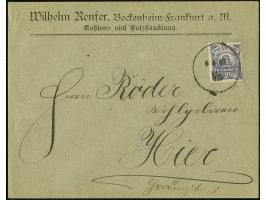 Wilhelm Renfer, Bockenheim-Frankfurt a. M.
Kohlen- und Holzhandlung.
Herrn Röder
Wohlgeboren
Hier